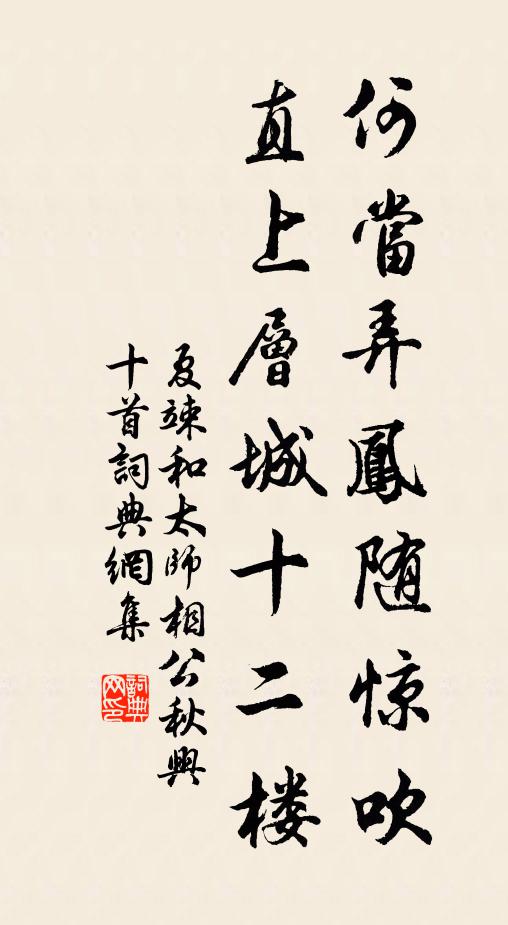 何當弄鳳随惊吹
直上層城十二楼
夏竦和太師相公秋興
十首詞典網集
詞典网印